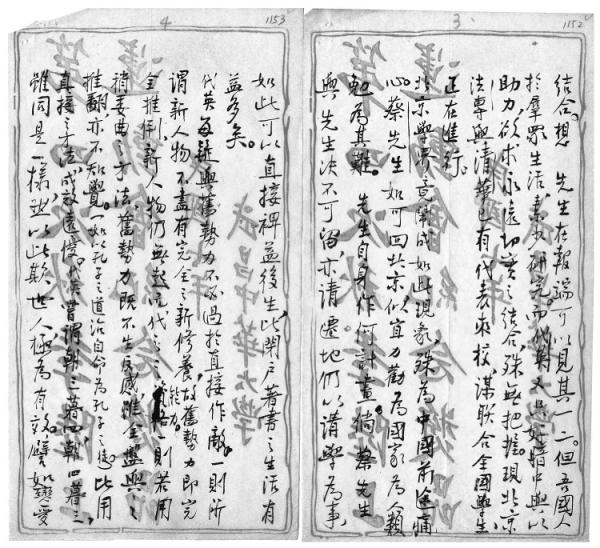 1152
3
結合。想 先生在報端可以見其一二。但吾國人
於羣眾生活,素少研究,而代英又只好暗中與以
助力,欲求永遠切實之結合,殊無把握。現北京
法專與清華已有代表來校,謀聯合全國學生,
正在進行。
北京學界竟鬧成如此現象,殊為中國前途痛
心。蔡先生如可回北京,似宜力勸為國家為人類
勉為其難。 先生自身作何計畫?倘蔡先生
與 先生決不可留,亦請遷地仍以講學為事,
1153
4
如此可以直接裨益後生,此閉戶著書之生活有
益多矣。
代英每謂與舊勢力不必過於直接作敵。一則所
謂新人物不盡有完全之新修養,故舊勢力即完
全推倒,新人物仍無起而代之之能力。一則若用
稍委曲之方法,舊勢力既不生反感,雖全盤與之
推翻,亦不知覺。一如以孔子之道治自命為孔子之徒。此用
直接之方法,成敗遠。代英嘗謂朝三暮四,朝四暮三,
雖同是一樣,然以此欺世人,極為有效。譬如戀愛
武昌中華大學